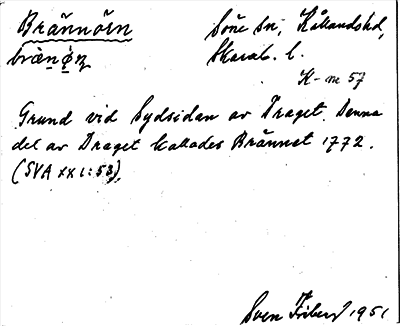 Brännöin
Söne sn, Kållandshd,
brænø̣ɪṇ
Skarab. l.
K-m 57
Grund vid Sydsidan av Draget. Denna
del av Draget kallades Brännet 1772.
(SVA XXI:53).
Sven Friberg 1951